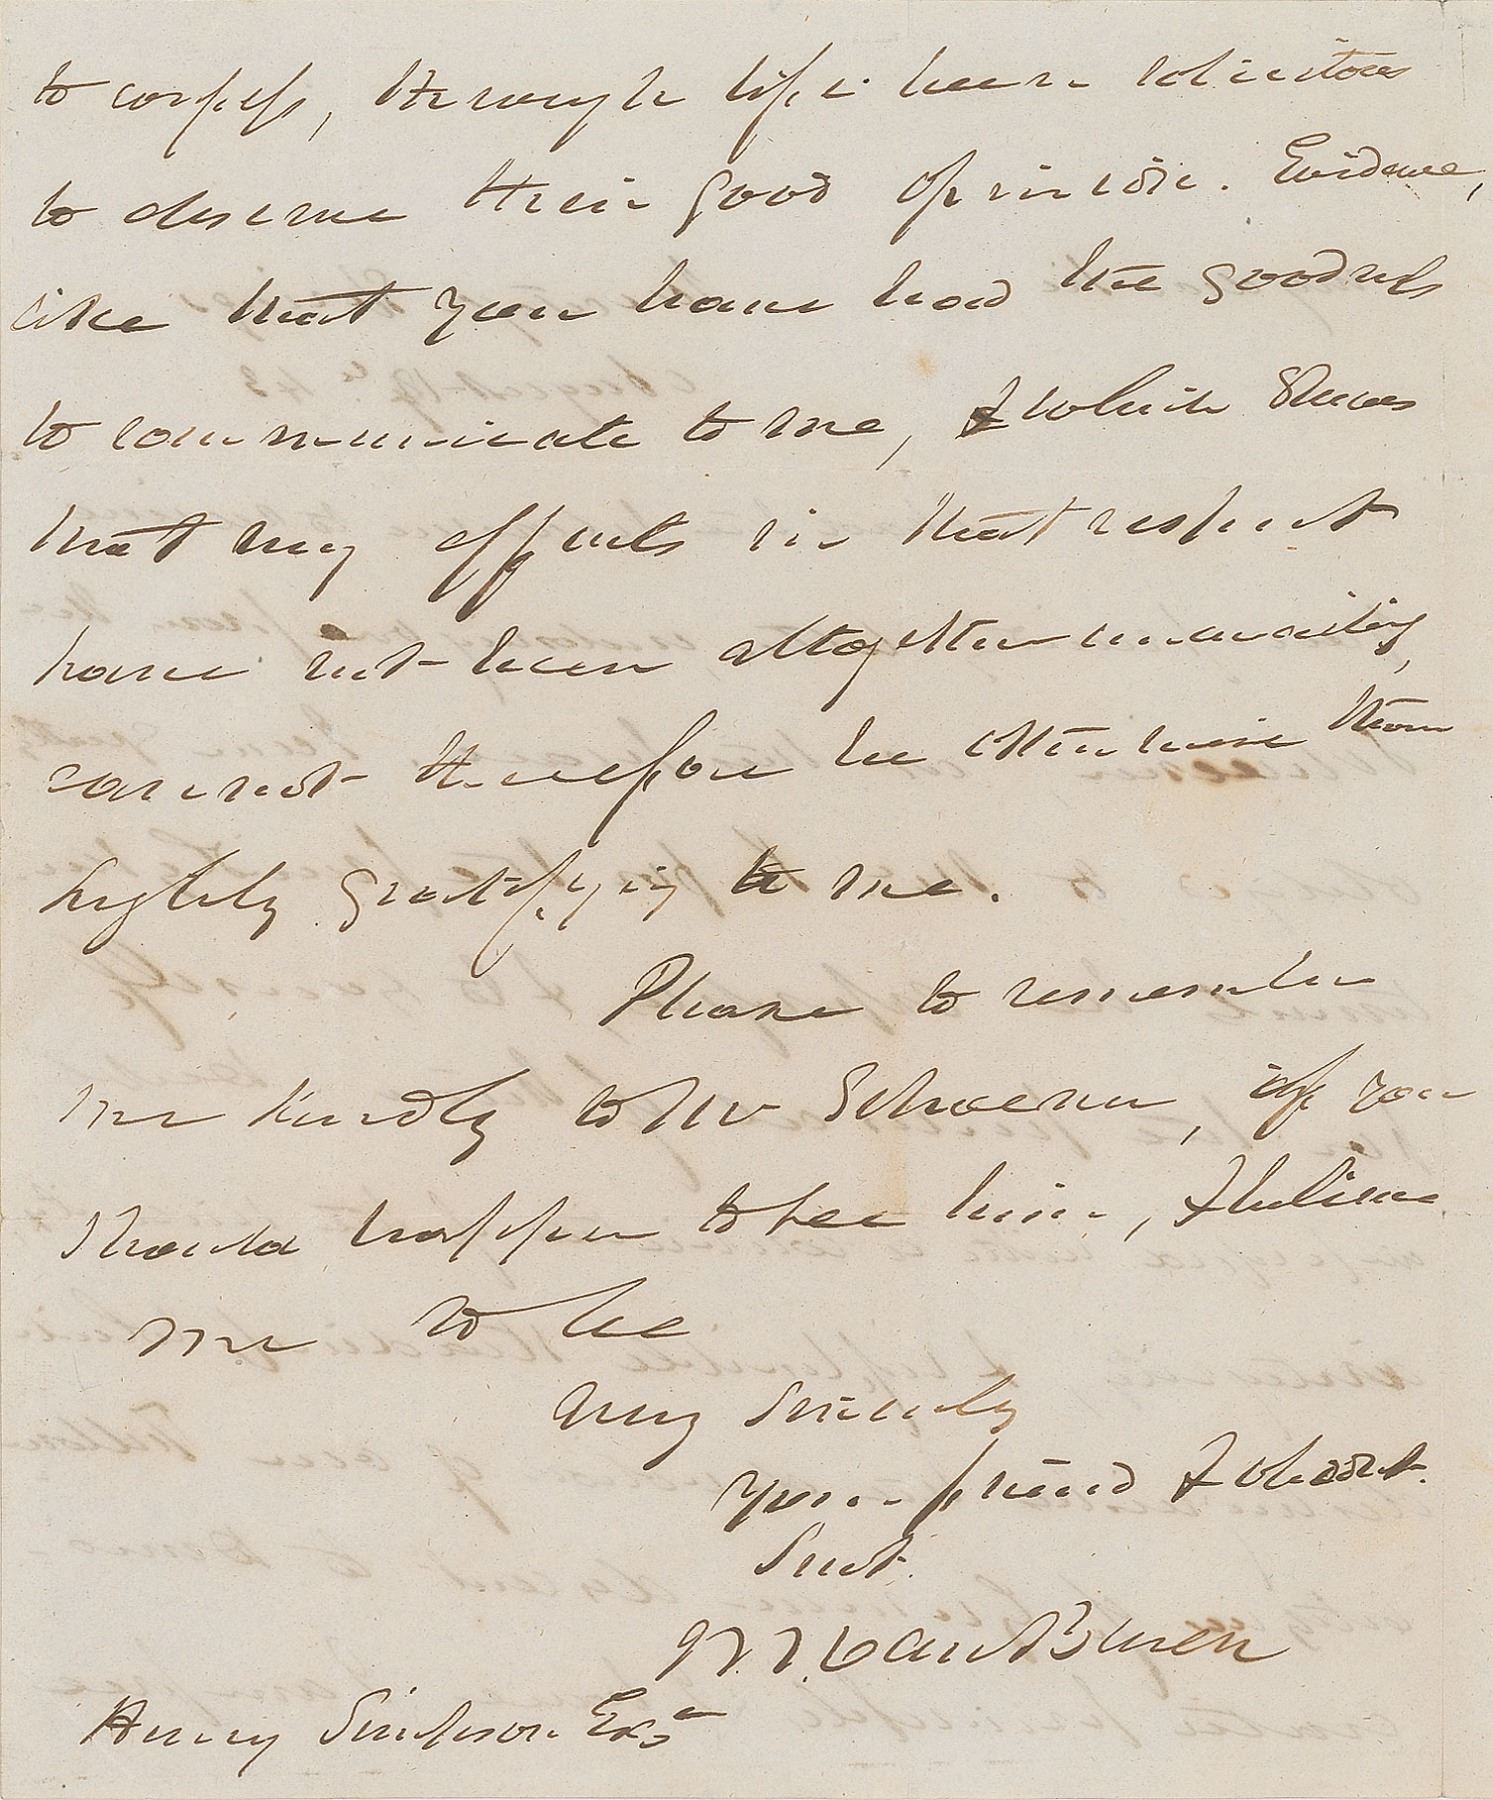 to confess, through life been solicitous
to deserve their good opinion. Evidence,
like that you have had the goodness
to communicate to me, & which shews
that my efforts in that respect
have not been altogether unavailing,
cannot therefore be otherwise than
highly gratifying to me.
Please to remember
me kindly to Mr, if you
should happen to see him, & believe
me to be
very sincerely
your friend & obedt.
Servt.
M. Van Buren
Henry Simpson Esqr